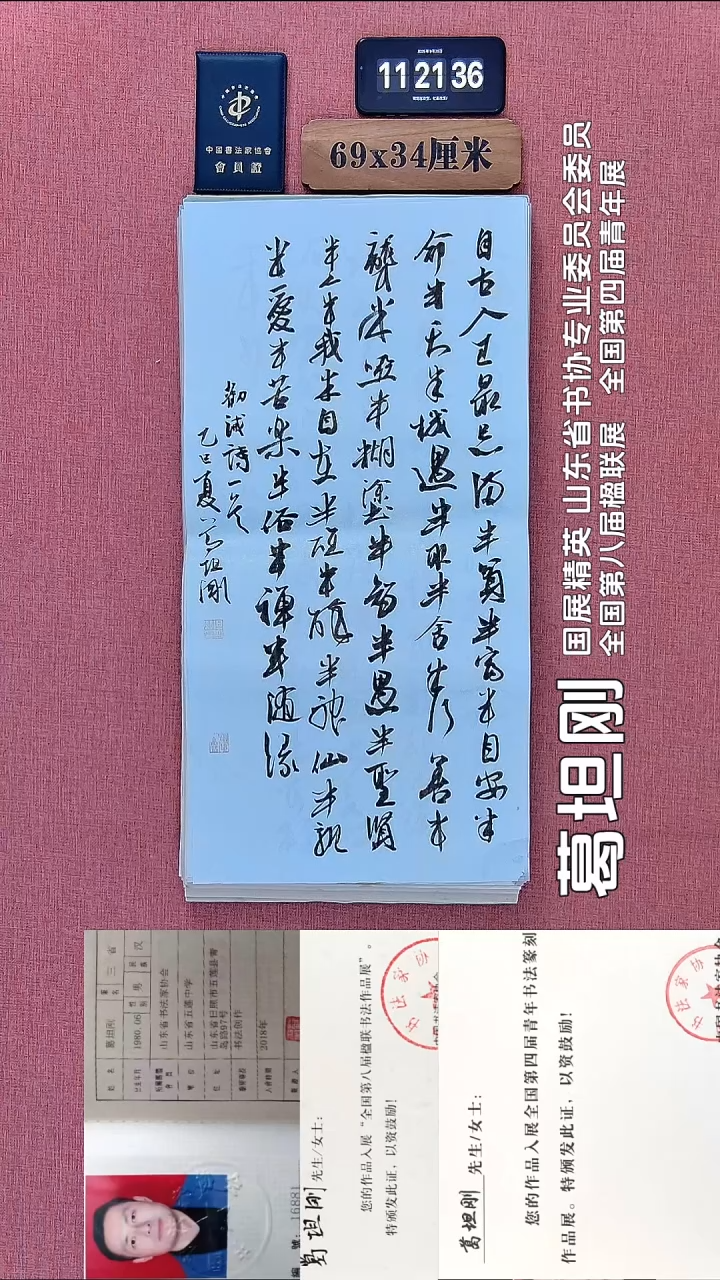 中國書法家協會
會員證
11 21 36
69x34厘米
自古人生最忌满半貧半富半自安半
命半天半機遇半取半舍半行善半
聾半啞半糊塗半智半愚半聖賢
半人半我半自在半醒半醉半神仙半親
半愛半苦樂半俗半禪半随緣
勸诫诗一首
乙巳夏葛坦刚
葛坦刚
国展精英 山东省书协专业委员会委员
全国第八届楹联展 全国第四届青年展
姓名 葛坦刚
1980.06 性别 男 民族 汉
山东省书法家协会
山东省五莲中学
山东省日照市五莲县青
岛路97号
书法创作
2018年
編號：16881
葛坦刚 先生/女士：
您的作品入展“全国第八届楹联书法作品展”。
特颁发此证，以资鼓励！
葛坦刚 先生/女士：
您的作品入展全国第四届青年书法篆刻
作品展。特颁发此证，以资鼓励！